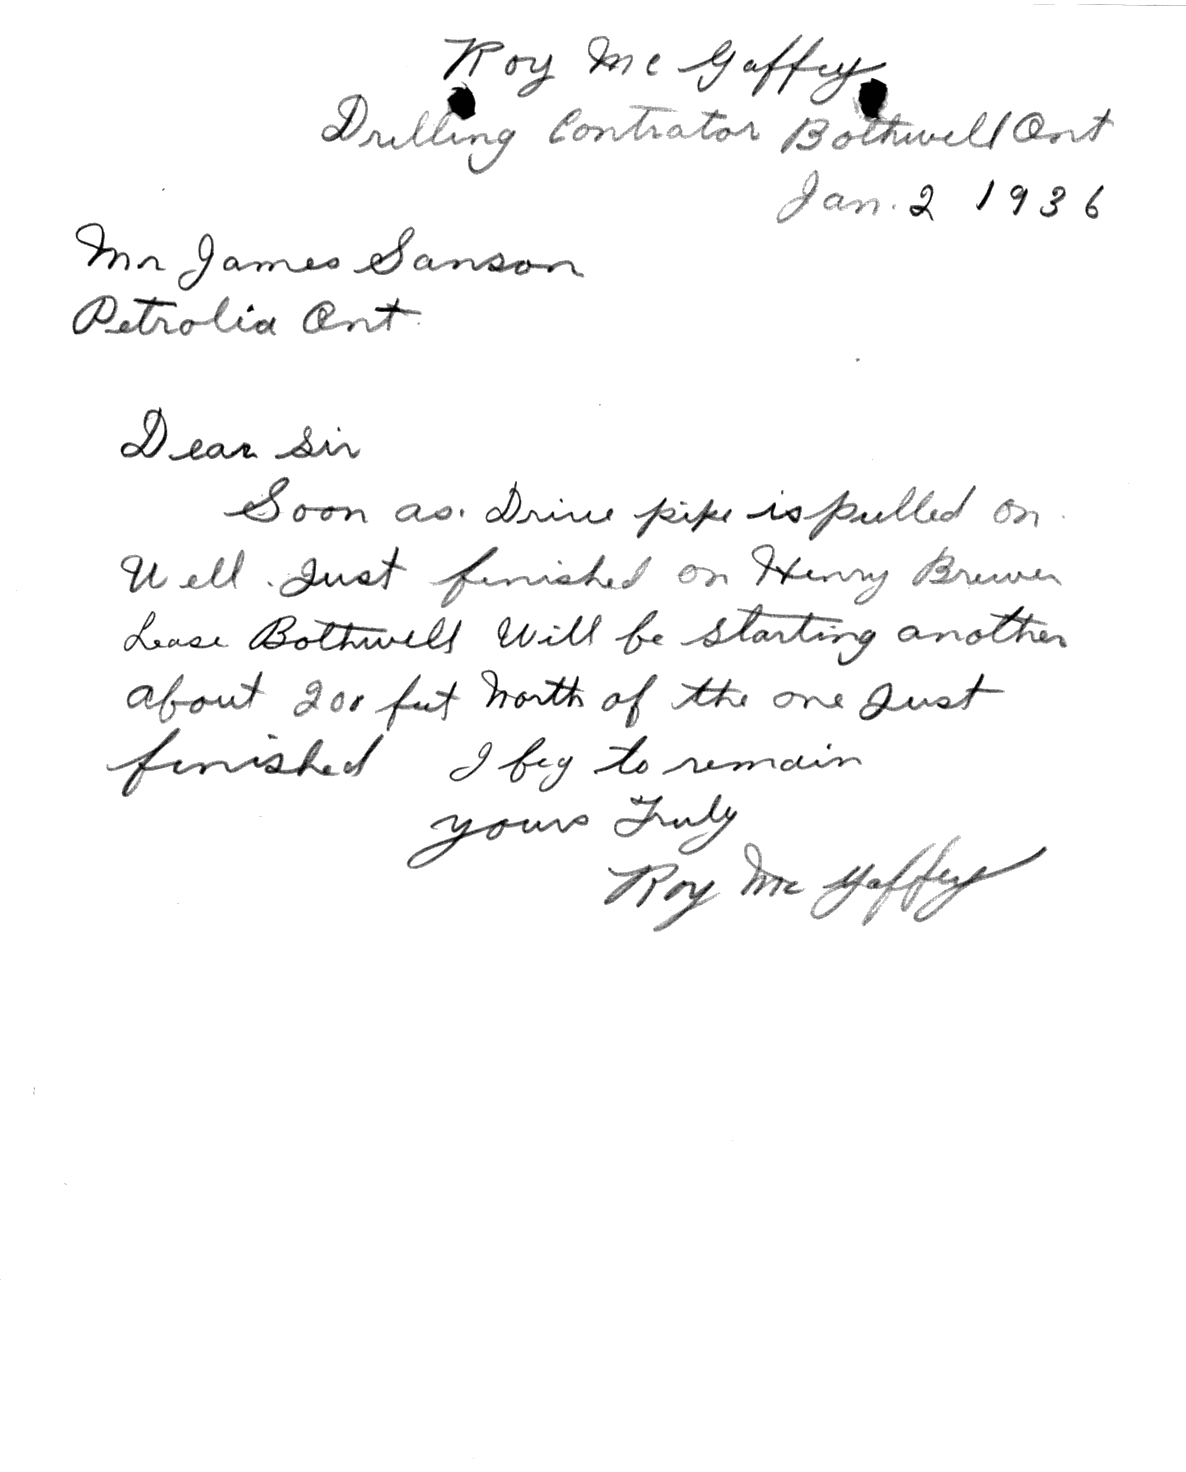 Roy McGaffey
Drilling Contrator Bothwell Ont
Jan. 2 1936
Mr James Sanson
Petrolia Ont
Dear Sir
Soon as Drive pipe is pulled on
Well. Just finished on Henry Brewer
Lease Bothwell Will be starting another
about 200 feet North of the one Just
finished I beg to remain
yours Truly
Roy McGaffey